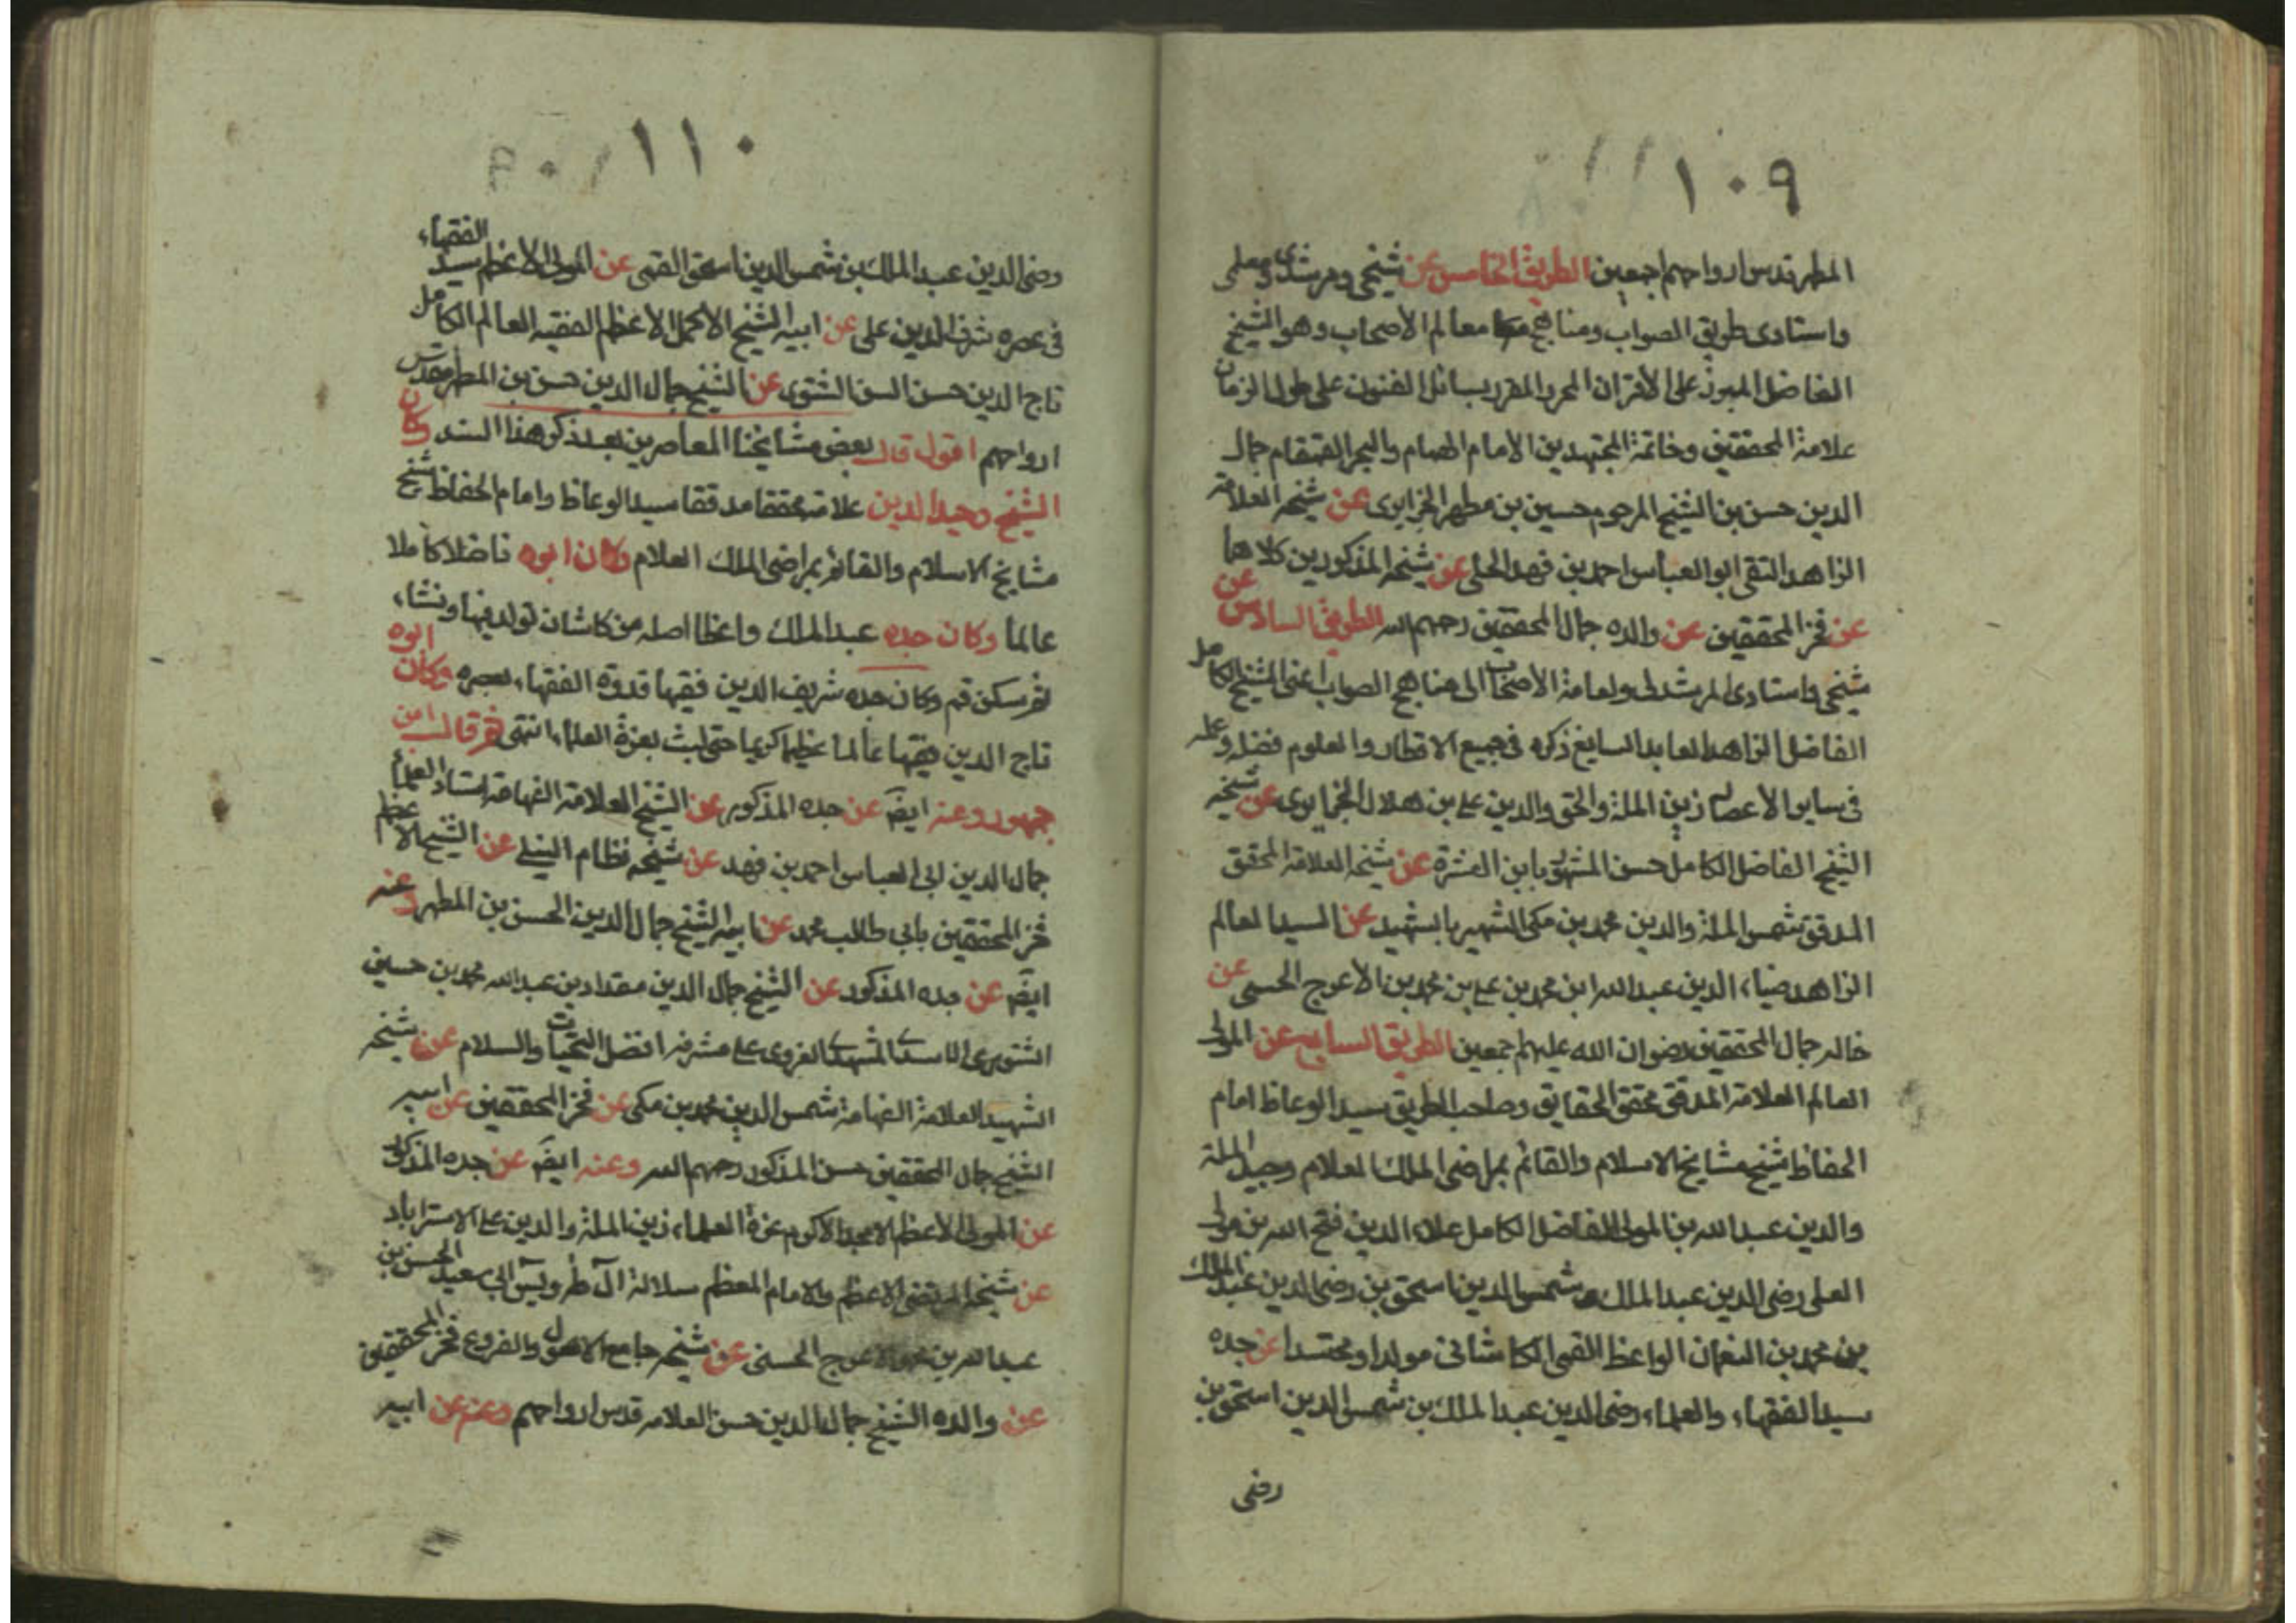 ١٠٩
المطهر قدس ارواحهم اجمعين الطريق الخامس عن شيخي ومرشدي ومعلمي
واستادى طريق الصواب ومناهج معالم الأصحاب وهو الشيخ
الفاضل المبرز على الأقران المحرر المقرر لسائل الفنون على طول الزمان
علامة المحققين وخاتمة المجتهدين الأمام الهمام والبحر القمقام جمال
الدين حسن بن الشيخ المرحوم حسين بن مطهر الجزايرى عن شيخه العلامة
الزاهد التقى ابو العباس احمد بن فهد الحلى عن شيخه المذكورين كلاهما
عن فخر المحققين عن والده جمال المحققين رحمهم الله الطريق السادس عن
شيخى واستادى المرشد لى ولعامة الأصحاب الى مناهج الصواب اعنى الشيخ الكامل
الفاضل الزاهد العابد السايغ ذكره فى جميع الاقطار والعلوم فضله وعمله
فى ساير الأعصار زين الملة والحق والدين على بن هلال الجزايرى عن شيخه
الشيخ الفاضل الكامل حسن المشهور بابن العشرة عن شيخه العلامة المحقق
المدقق شمس الملة والدين محمد بن مكى الشهير بالشهيد عن السيد العالم
الزاهد ضياء الدين عبد الله ابن محمد بن على بن محمد بن الأعرج الحسينى عن
خاله جمال المحققين رضوان الله عليهم اجمعين الطريق السابع عن المولى
العالم العلامة المدقق محقق الحقايق وصاحب الطريق سيد الوعاظ امام
الحفاظ شيخ مشايخ الاسلام والقائم بمراضى الملك العلام وجيه الملة
والدين عبد الله بن المولى الفاضل الكامل علاء الدين فتح الله بن مولى
العلى رضى الدين عبد الملك بن شمس الدين اسحق بن رضى الدين عبد الملك
بن محمد بن النعمان الواعظ القمى الكاشانى مولدا ومحتدا عن جده
سيد الفقهاء والعلماء رضى الدين عبد الملك بن شمس الدين اسحق بن
رضى
١١٠
رضى الدين عبد الملك بن شمس الدين اسحق القمى عن المولى الاعظم سيد الفقهاء
فى عصره شرف الدين على عن ابيه الشيخ الأكمل الأعظم الفقيه العالم الكامل
تاج الدين حسن السر الشنوى عن الشيخ جمال الدين حسن بن المطهر قدس
ارواحهم اقول قال بعض مشايخنا المعاصرين بعد ذكر هذا السند وكان
الشيخ وحيد الدين علامة محققا مدققا سيد الوعاظ وامام الحفاظ شيخ
مشايخ الاسلام والقائم بمراضى الملك العلام وكان ابوه فاضلا كاملا
عالما وكان جده عبد الملك واعظا اصله من كاشان تولد فيها ونشاء
ثم سكن قم وكان جده شريف الدين فقيها قدوة الفقهاء بعصره وكان ابوه
تاج الدين فقيها عالما عظيما كريما حتى لبث بعزة العلماء انتهى ثم قال ابن
جمهور وعنه ايضا عن جده المذكور عن الشيخ العلامة الفهامة استاد العلماء
جمال الدين ابى العباس احمد بن فهد عن شيخه نظام النيلى عن الشيخ الأعظم
فخر المحققين بابى طالب محمد عن ابيه الشيخ جمال الدين الحسن بن المطهر وعنه
ايضا عن جده المذكور عن الشيخ جمال الدين مقداد بن عبد الله محمد بن حسين
الشيورى الاسدى المشهدى الغروى على مشرفه افضل التحيات والسلام عن شيخه
الشهيد العلامة الفهامة شمس الدين محمد بن مكى عن فخر المحققين عن ابيه
الشيخ جمال المحققين حسن المذكور رحمهم الله وعنه ايضا عن جده المذكور
عن المولى الأعظم الامجد الاكرم عزة العلماء زين الملة والدين على الاسترابادى
عن شيخه المرتضى الاعظم والامام المعظم سلالة آل طه ويس ابى سعيد الحسن بن
عبد الله بن محمد الأعرج الحسينى عن شيخه جامع الاصول والفروع فخر المحققين
عن والده الشيخ جمال الدين حسن العلامة قدس ارواحهم وعنه عن ابيه